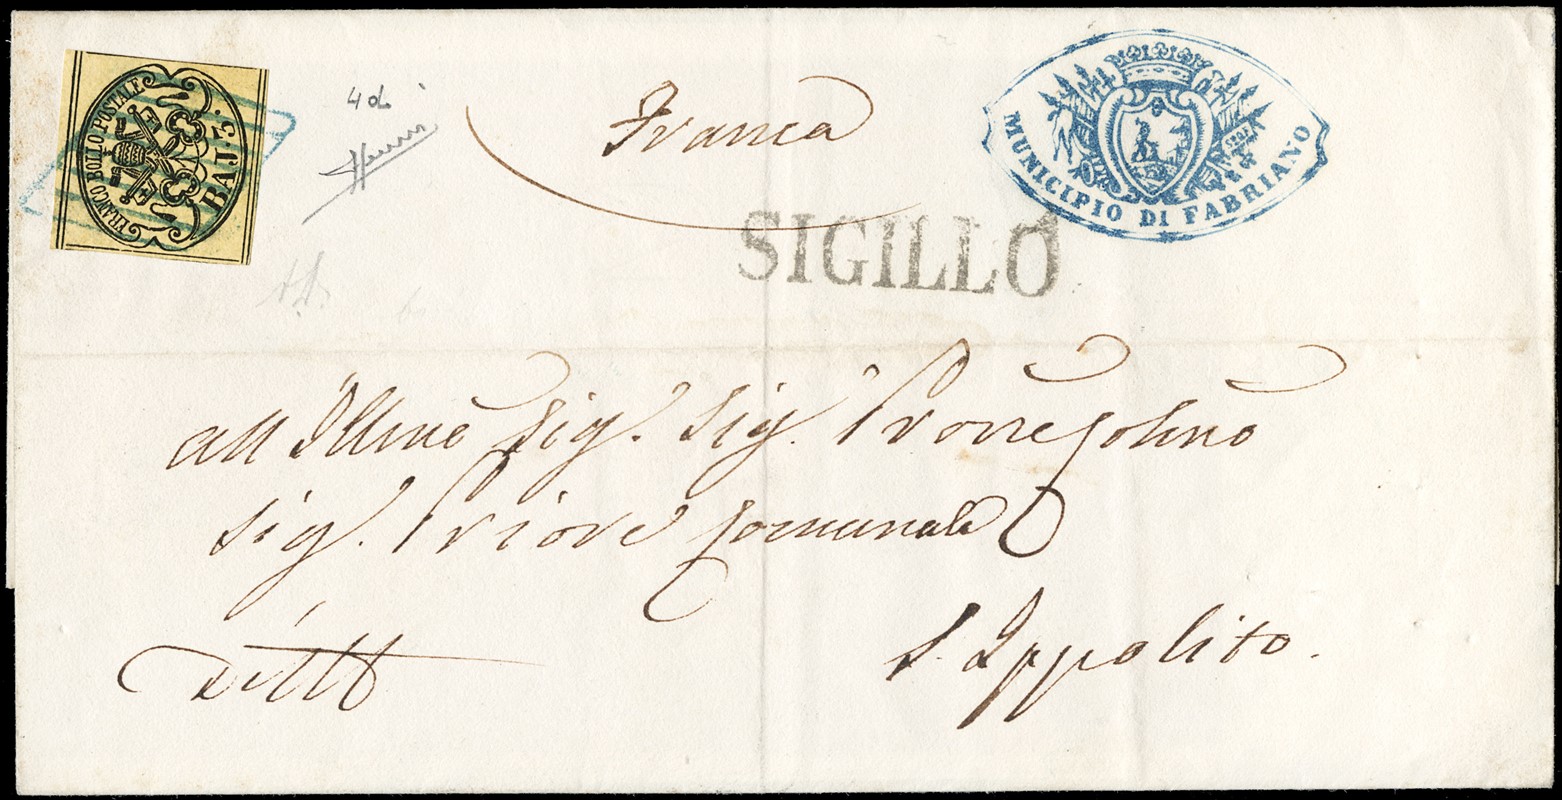 FRANCO BOLLO POSTALE
BAJ. 3.
4 d
Franca
MUNICIPIO DI FABRIANO
SIGILLO
all Illmo Sig. Sig.
Sig. Priore Comunale
S. Ippolito.